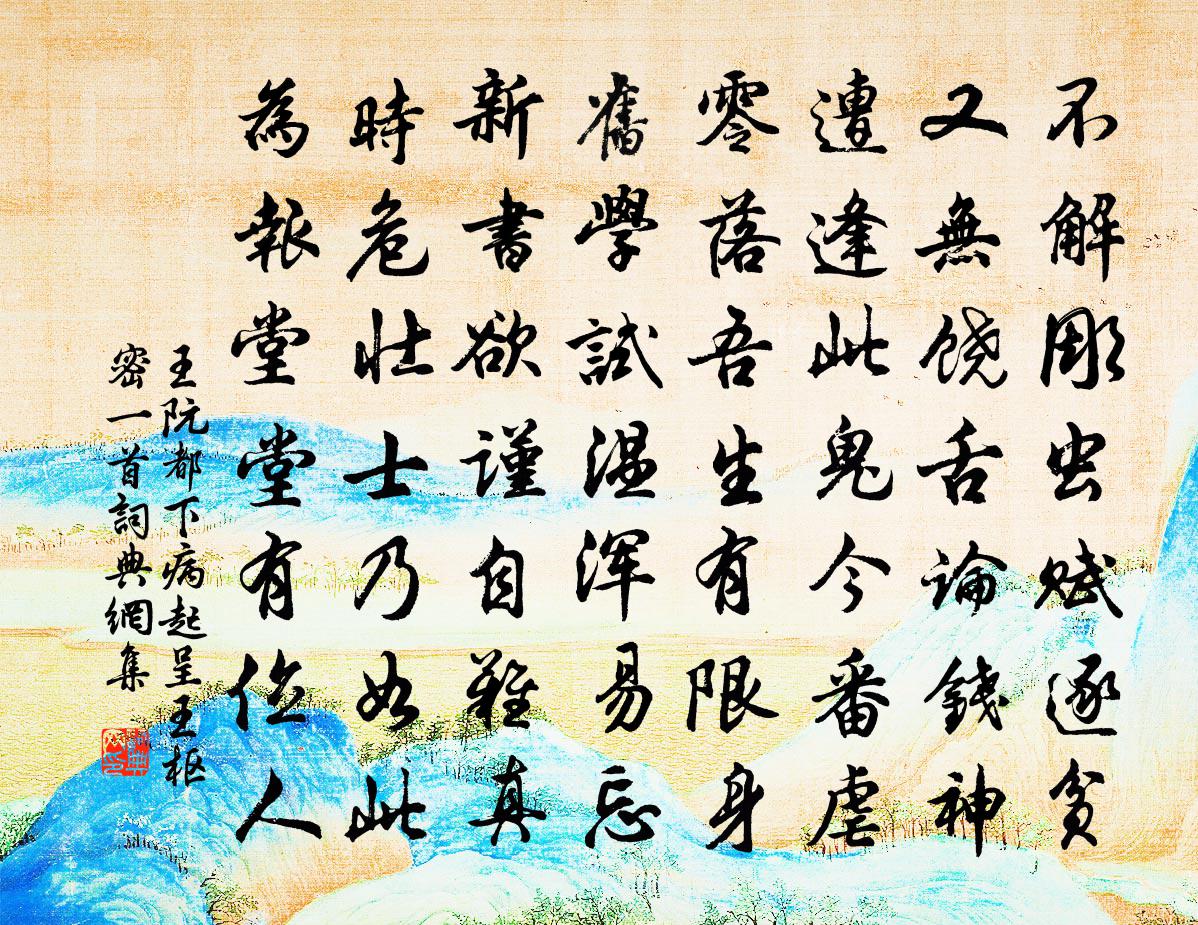 不解彫虫賦逐貧
又無饒舌論錢神
遭逢此鬼今番虐
零落吾生有限身
舊學試温浑易忘
新書欲謹自難真
時危壮士乃如此
為報堂堂有位人
王阮都下病起呈王枢
密一首詞典網集